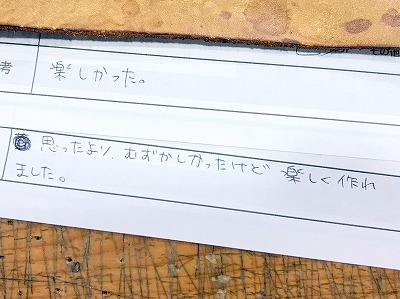 その他
考
楽しかった。
思ったより、むずかしかったけど 楽しく作れ
ました。